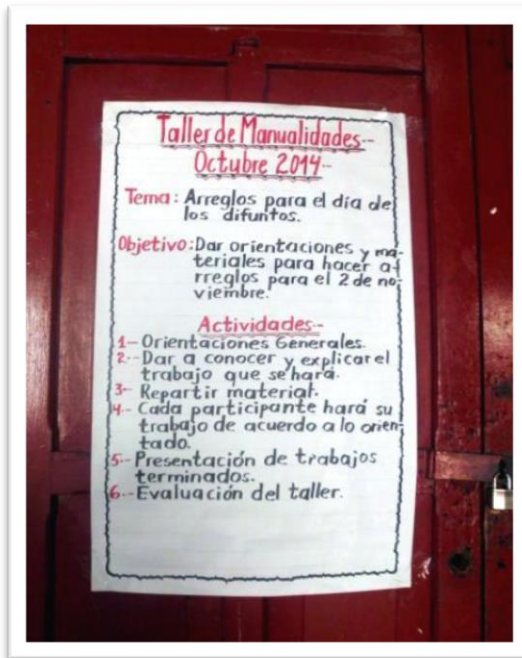 Taller de Manualidades--
Octubre 2014-
Tema: Arreglos para el día de
los difuntos.
Objetivo: Dar orientaciones y ma-
teriales para hacer a
rreglos para el 2 de no-
viembre.
Actividades--
1- Orientaciones Generales.
2.- Dar a conocer y explicar el
trabajo que se hará.
3- Repartir material.
4.- Cada participante hará su
trabajo de acuerdo a lo orien-
tado.
5.- Presentación de trabajos
terminados.
6.- Evaluación del taller.